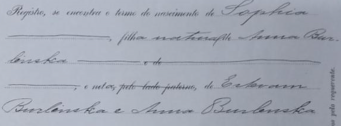 Registro, se encontra o termo de nascimento de Sophia
, filha natural de Anna Bur-
lenska e de
, e neto, pelo lado paterno, de Estevam
Burlenska e Anna Burlenska
pelo requerente